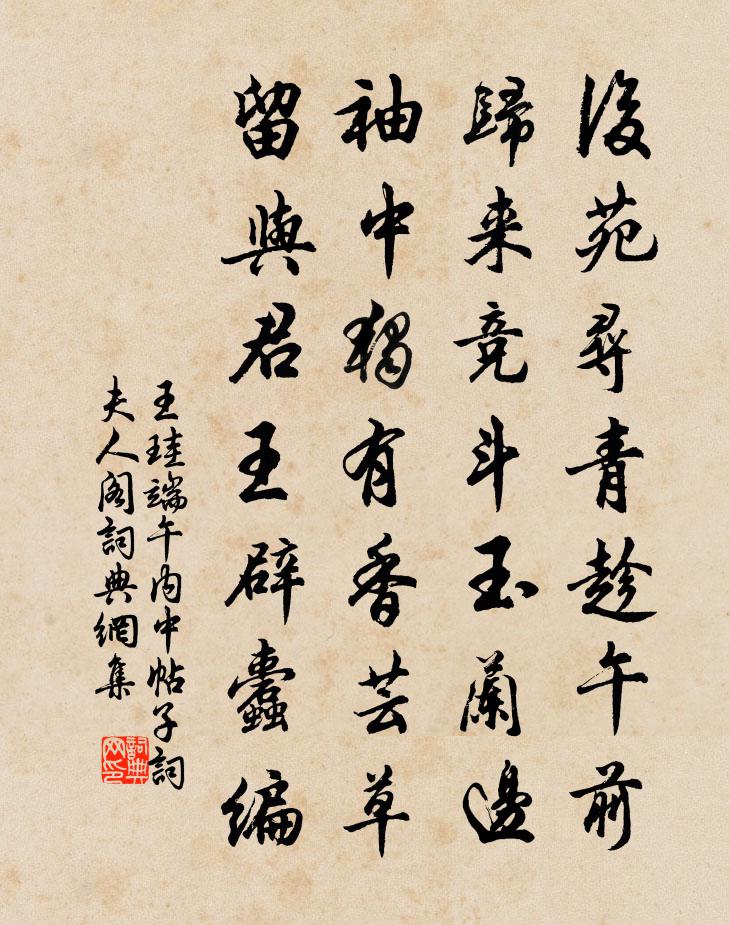 後苑尋青趁午前
歸来竞斗玉蘭邊
袖中獨有香芸草
留與君王辟蠹编
王珪端午内中帖子詞
夫人阁詞典網集
詞典网印